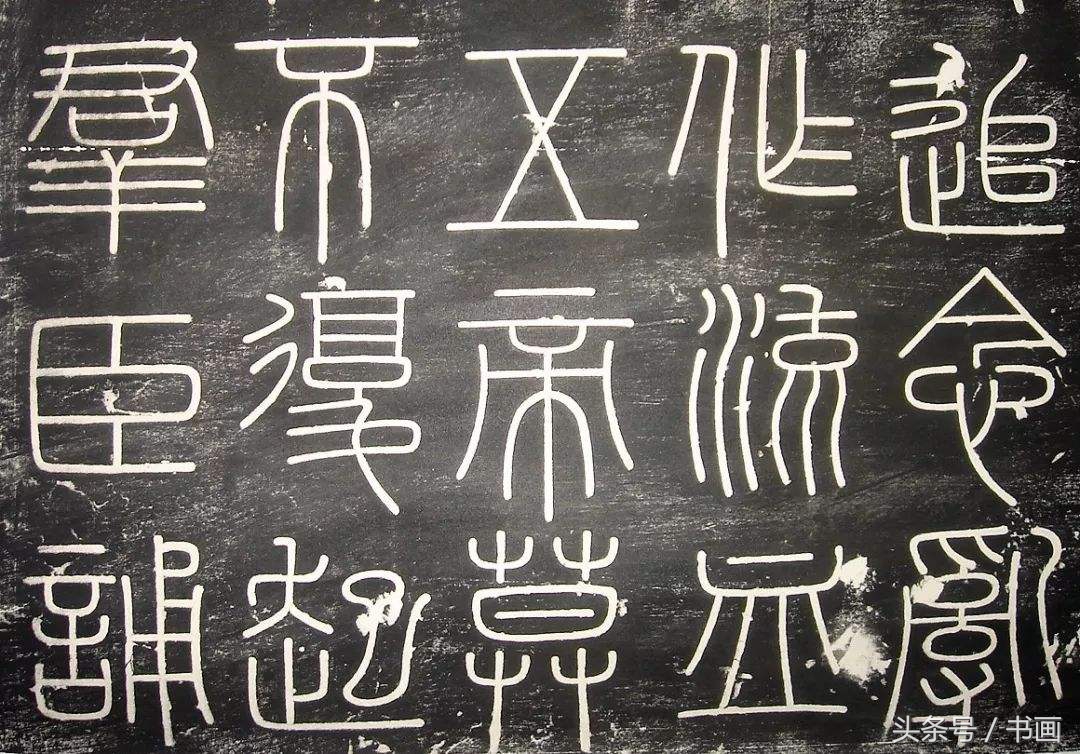 追念亂
作流血
五帝莫
不復起
羣臣誦
头条号 / 书画